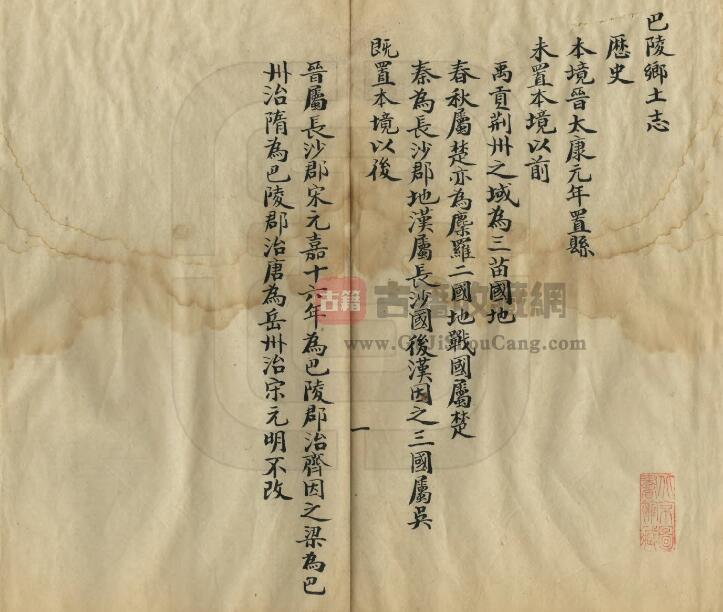 巴陵鄉土志
歷史
本境晉太康元年置縣
未置本境以前
禹貢荆州之域為三苗國地
春秋屬楚亦為麋羅二國地戰國屬楚
秦為長沙郡地漢屬長沙國後漢因之三國屬吳
既置本境以後
晉屬長沙郡宋元嘉十六年為巴陵郡治齊因之梁為巴
州治隋為巴陵郡治唐為岳州治宋元明不改
一
古籍
古籍收藏網
www.GuJiShouCang.com